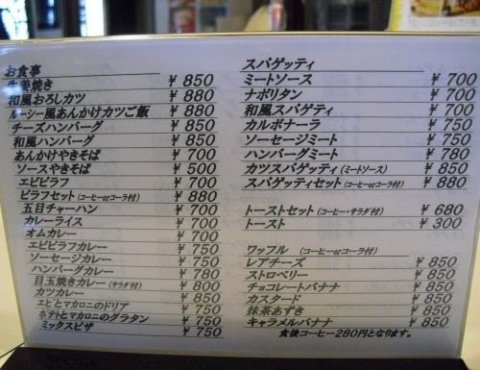 お食事
生姜焼き ¥850
和風おろしカツ ¥880
ルーシー風あんかけカツご飯 ¥880
チーズハンバーグ ¥850
和風ハンバーグ ¥850
あんかけやきそば ¥700
ソースやきそば ¥500
エビピラフ ¥700
ピラフセット(コーヒーorコーラ付) ¥880
五目チャーハン ¥700
カレーライス ¥700
オムカレー ¥700
エビピラフカレー ¥750
ソーセージカレー ¥750
ハンバーグカレー ¥780
目玉焼きカレー(サラダ付) ¥800
カツカレー ¥750
エビとマカロニのドリア ¥750
ポテトとマカロニのグラタン ¥750
ミックスピザ ¥750
スパゲッティ
ミートソース ¥700
ナポリタン ¥700
和風スパゲティ ¥700
カルボナーラ ¥750
ソーセージミート ¥750
ハンバーグミート ¥780
カツスパゲッティ(ミートソース) ¥850
スパゲッティセット(コーヒーorコーラ付) ¥880
トーストセット(コーヒー・サラダ付) ¥680
トースト ¥300
ワッフル (コーヒーorコーラ付)
レアチーズ ¥850
ストロベリー ¥850
チョコレートバナナ ¥850
カスタード ¥850
抹茶あずき ¥850
キャラメルバナナ ¥850
食後コーヒー280円となります。